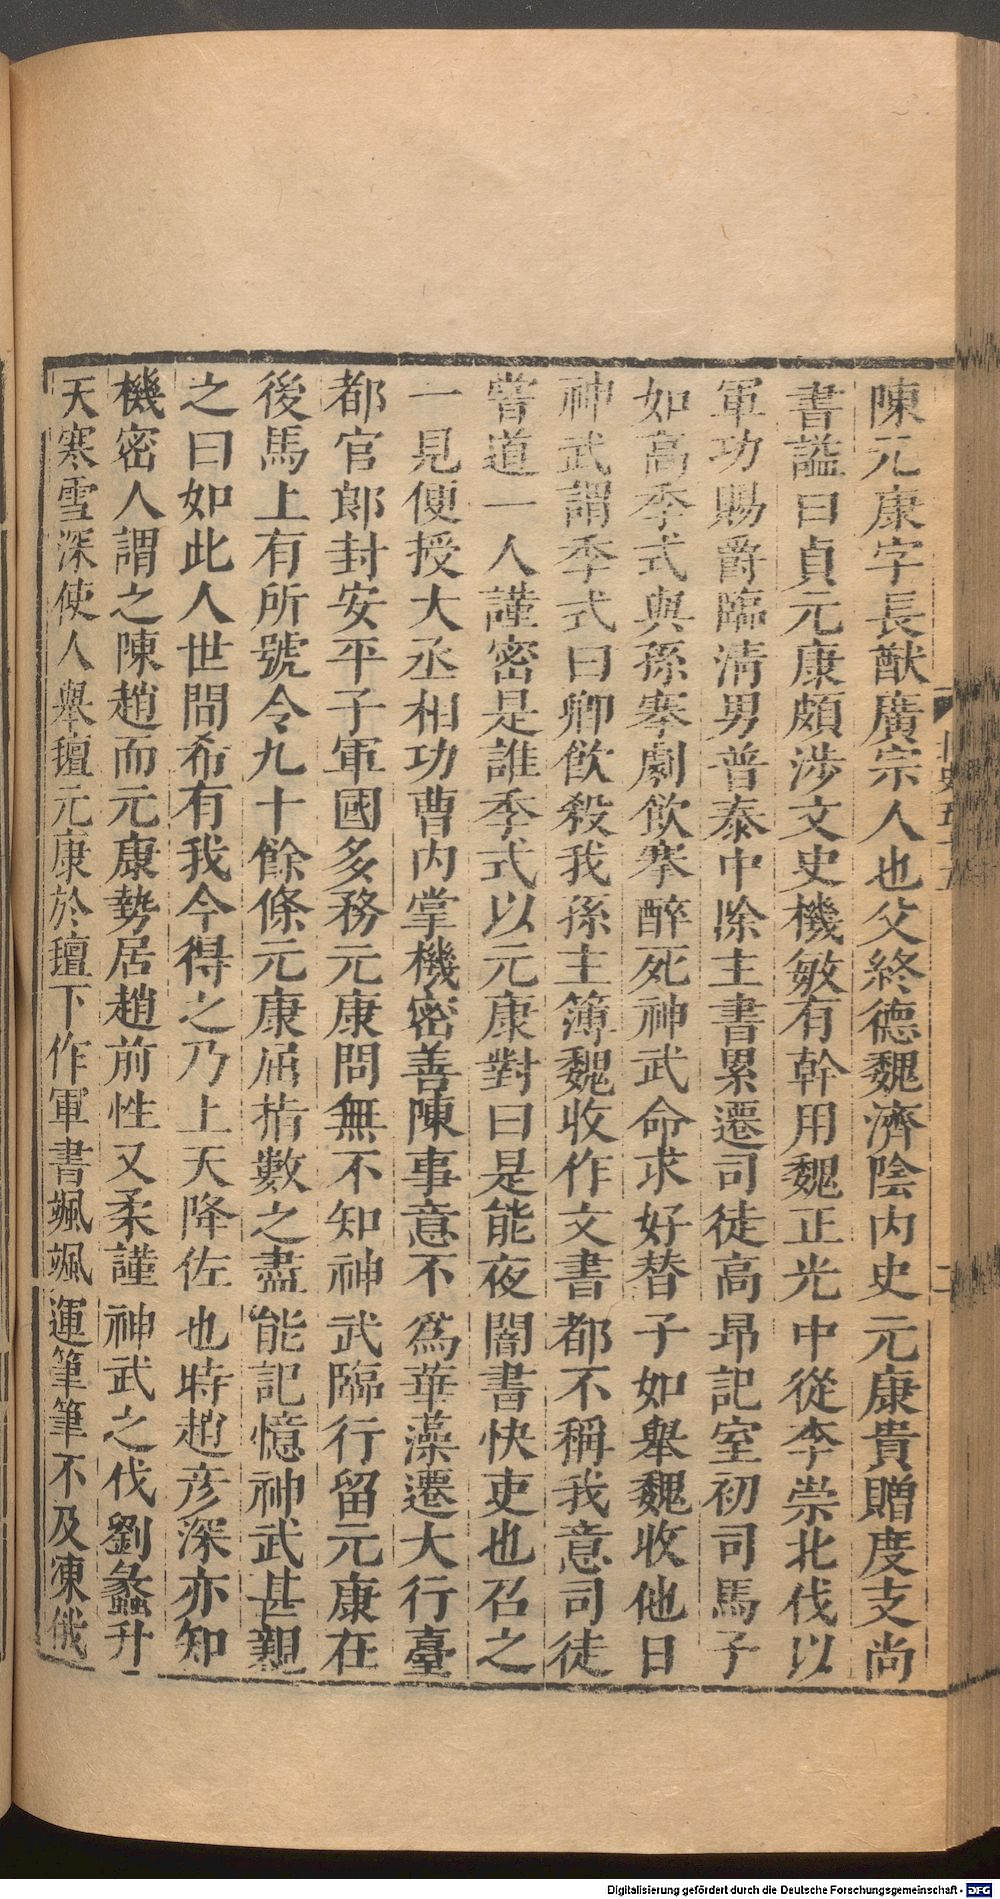 陳元康字長猷廣宗人也父終德魏濟陰內史元康貴贈度支尚
書謚曰貞元康頗涉文史機敏有幹用魏正光中從李崇北伐以
軍功賜爵臨清男普泰中除主書累遷司徒高昂記室初司馬子
如高季式與孫搴劇飲搴醉死神武命求好替子如舉魏收他日
神武謂季式曰卿飲殺我孫主簿魏收作文書都不稱我意司徒
嘗道一人謹密是誰季式以元康對曰是能夜闇書快吏也召之
一見便授大丞相功曹內掌機密善陳事意不爲華藻遷大行臺
都官郎封安平子軍國多務元康問無不知神武臨行留元康在
後馬上有所號令九十餘條元康屈指數之盡能記憶神武甚親
之曰如此人世間希有我今得之乃上天降佐也時趙彥深亦知
機密人謂之陳趙而元康勢居趙前性又柔謹神武之伐劉蠡升
天寒雪深使人舉氊元康於氊下作軍書颯颯運筆筆不及凍俄
Digitalisierung gefördert durch die Deutsche Forschungsgemeinschaft - DFG